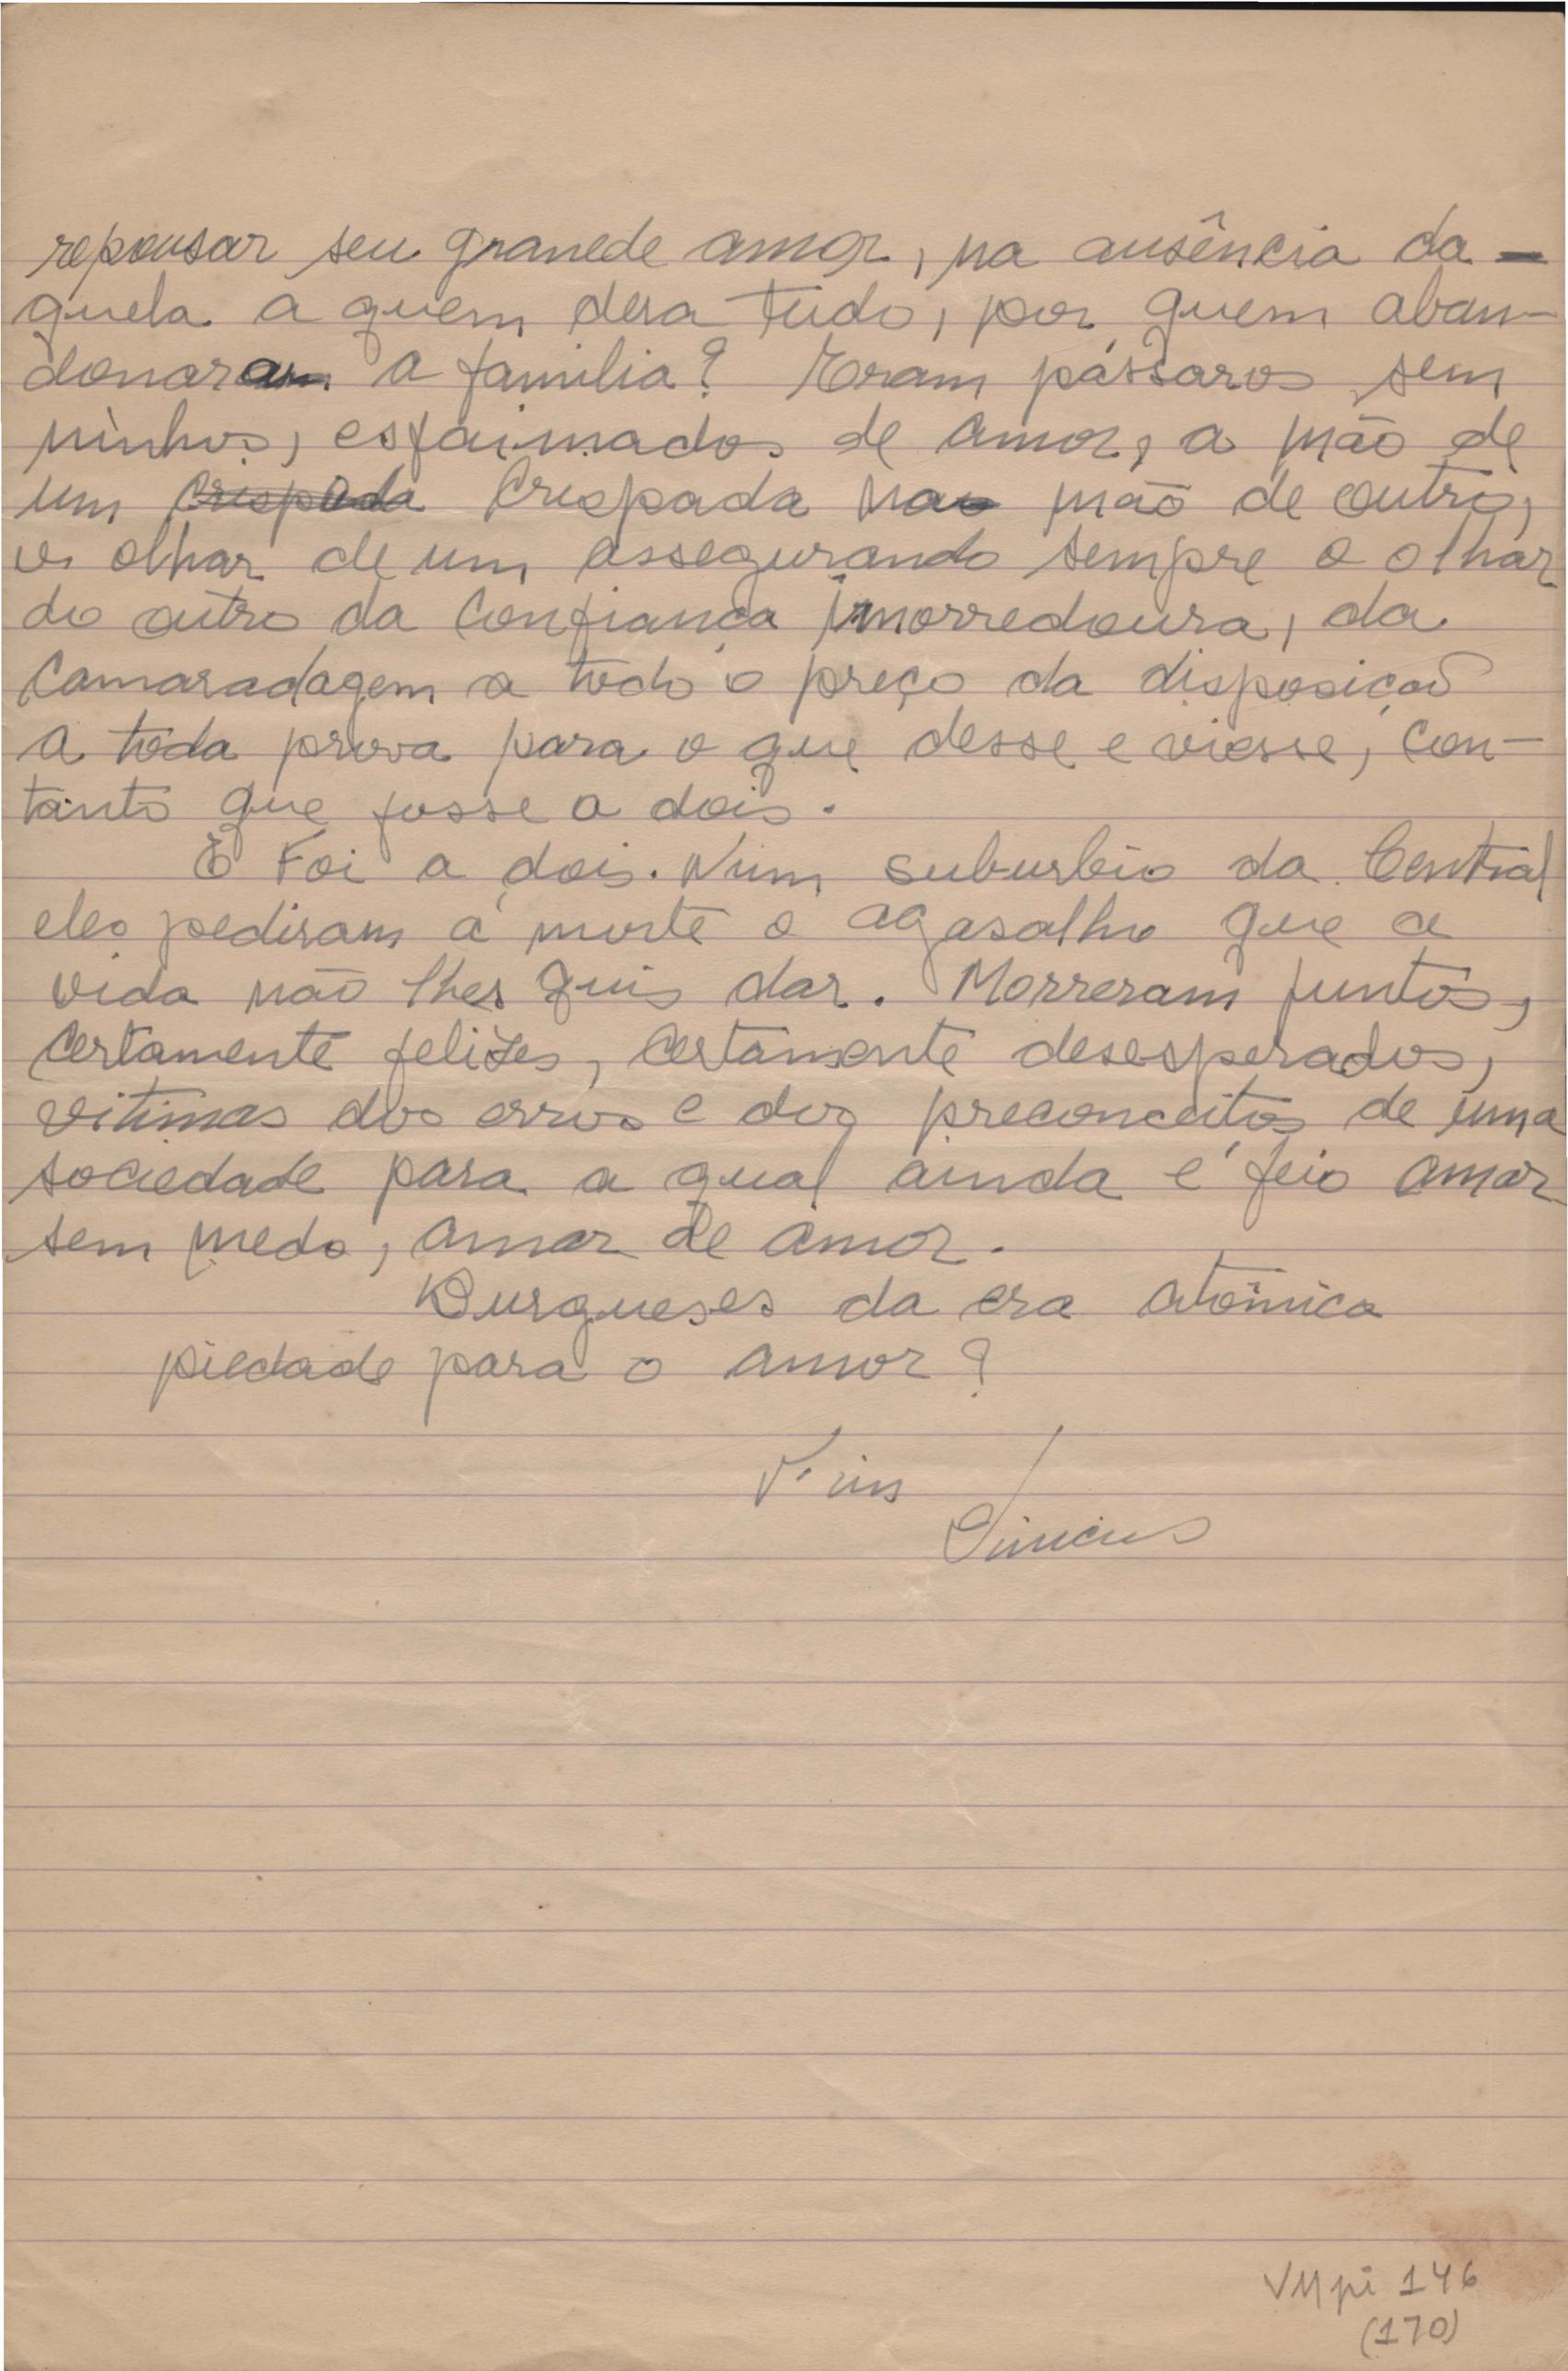 repousar seu granede amor, na ausência da-
quela a quem dera tudo, por quem aban-
donaram a familia? Eram pássaros sem
ninhos, esfaimados de amor, a mão de
um crispada crispada na mão de outro,
o olhar de um assegurando sempre o olhar
do outro da confiança imorredoura, da
camaradagem a todo o preço da disposição
a tôda prova para o que desse e viesse, con-
tanto que fosse a dois.
E Foi a dois. Num suburbio da Central
eles pediram á morte o agasalho que a
vida não lhes quis dar. Morreram juntos,
certamente felizes, certamente desesperados,
vitimas dos erros e dos preconceitos de uma
sociedade para a qual ainda é feio amar
sem medo, amar de amor.
Burgueses da era atômica
piedade para o amor?
Vinicius
VMpi 146
(170)